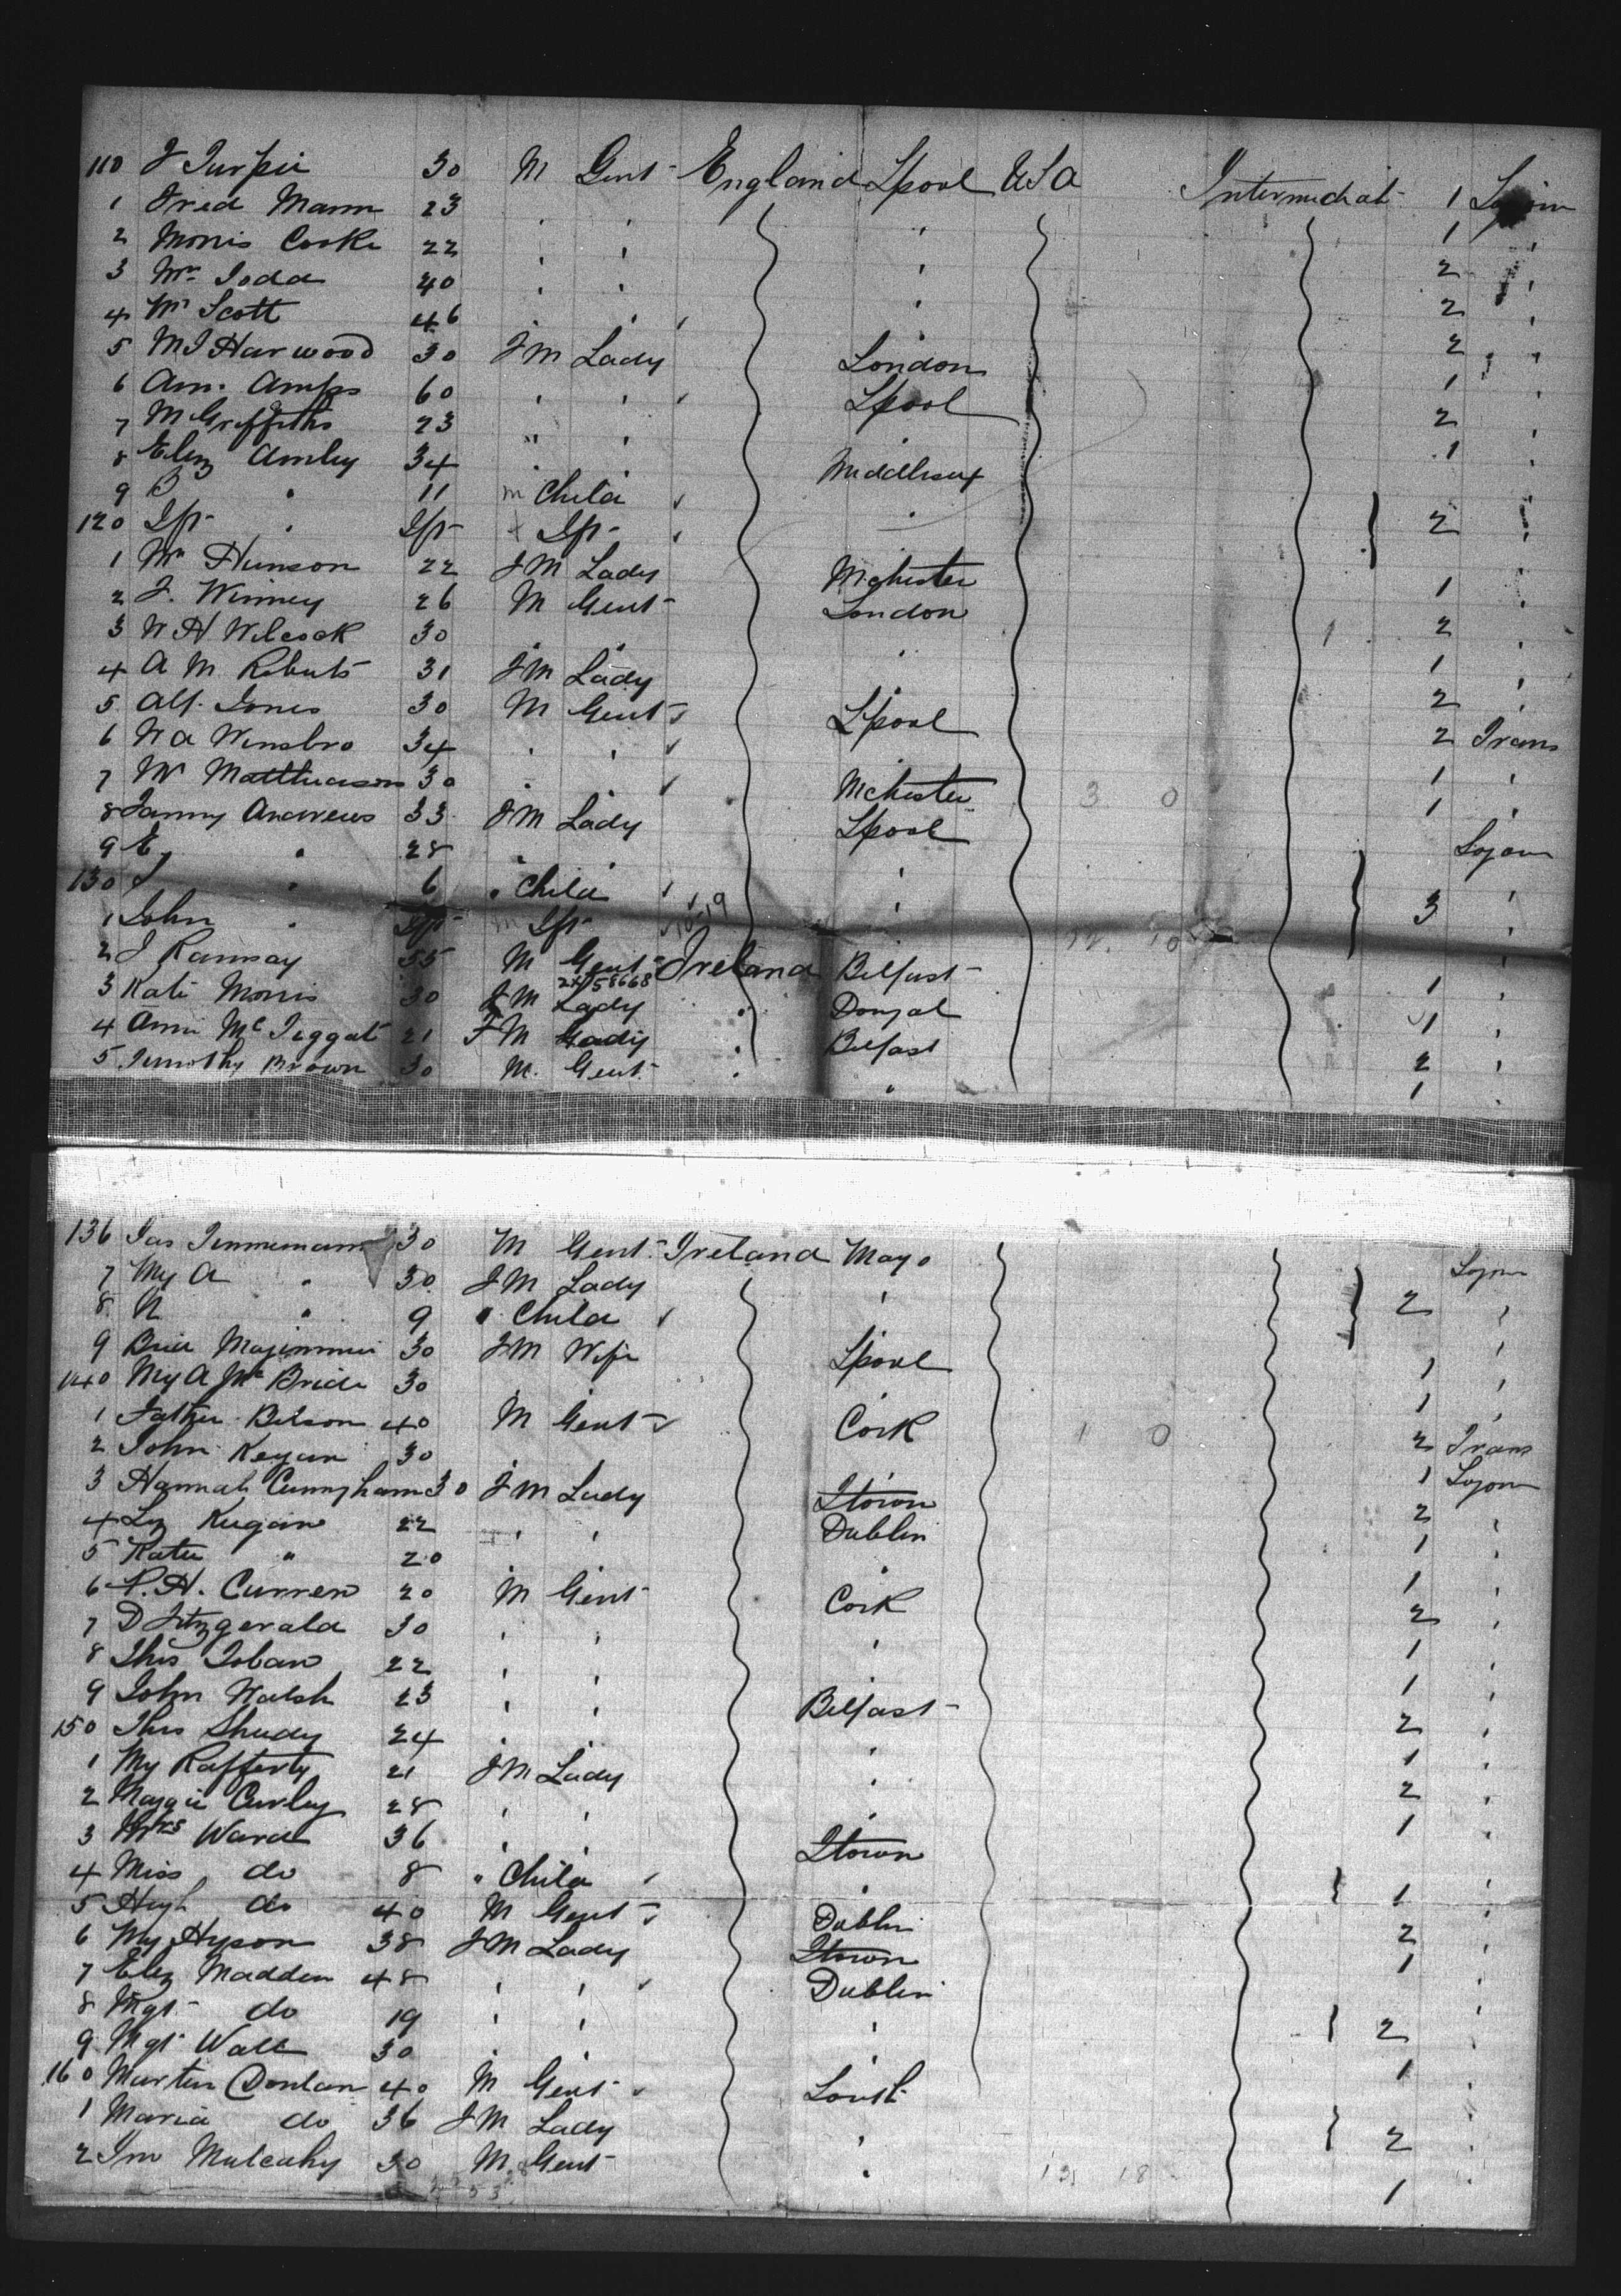 110 J Turpin 30 M Gent England Lpool USA Intermediat 1 Sojourn
1 Fred Mann 23 " " " 1 "
2 Morris Cooke 22 " " " 2 "
3 Mr Todd 40 " " " 2 "
4 Mr Scott 46 " " 2 "
5 M J Harwood 30 F M Lady London 1 "
6 Ann Amps 60 " " Lpool 2 "
7 M Griffiths 23 " " 1 "
8 Eliz Amley 34 " Middlesex
9 B " 11 m Child " 2 "
120 Ift " Ift Ift "
1 Mrs Hunson 22 F M Lady Mchester 1 "
2 J. Winney 26 M Gent London 2 "
3 W H Wilcock 30 " " " 1 "
4 A M Roberts 31 F M Lady " 2 "
5 Alf. Jones 30 M Gent Lpool 2 Trans
6 W A Winsbro 34 " " 1 "
7 Mr Matthuason 30 " Mchester 1 "
8 Fanny Andrews 33 F M Lady Lpool Sojourn
9 E " 28 " " "
130 J " 6 " Child " 3 "
1 John " Ift m Ift "
2 J Ramsay 55 M Gent Ireland Belfast 1 "
3 Kate Morris 30 F M Lady " Dongal 1 "
2X/58668
4 Anni McTeggat 21 F M Lady " Belfast 2 "
5 Timothy Brown 30 M. Gent " " 1 "
136 Jas Tinnemann 30 M Gent Ireland Mayo Sojour
7 My A " 30 F M Lady " 2 "
8 N " 9 " Child "
9 Brid Maginnin 30 F M Wife Lpool 1 "
140 My A McBride 30 " " 1 "
1 Father Belson 40 M Gent Cork 2 Trans
2 John Kegan 30 " 1 Sojour
3 Hannah Cunngham 30 F M Lady Qtown 2 "
4 Lz Kugan 22 " " Dublin 1 "
5 Kate " 20 " " " 1 "
6 P. H. Curren 20 M Gent Cork 2 "
7 D Fitzgerald 30 " " " 1 "
8 Thos Toban 22 " " 1 "
9 John Walsh 23 " " Belfast 2 "
150 Thos Sheedy 24 " " " 1 "
1 My Rafferty 21 F M Lady " 2 "
2 Maggie Curley 28 " " " 1 "
3 Mrs Ward 36 " " Qtown
4 Miss do 8 " Child " 1 "
5 Hugh do 40 M Gent Dublin 2 "
6 My Hyson 38 F M Lady Qtown 1 "
7 Eliz Madden 48 " " Dublin
8 Mgt do 19 " " " 2 "
9 Mgt Wall 30 " " " 1 "
160 Martin Donlan 40 M Gent Louth
1 Maria do 36 F M Lady " 2 "
2 Jno Mulcahy 30 M Gent " 1